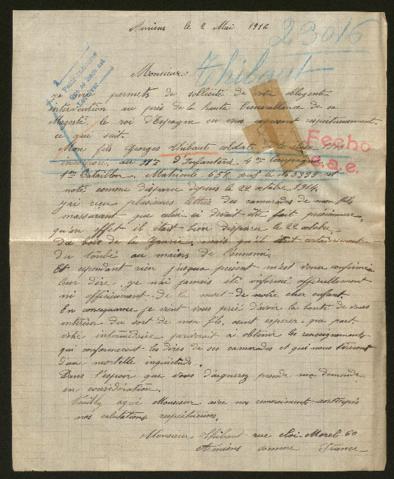 Amiens le 2 Mai 1916
23016
Thibaut
Monsieur
permets de solliciter de votre obligeante
intervention au près de la haute bienveillance de sa
Majesté, le roi d'Espagne en vous exposant respectueusement
ce que suit.
Mon fils Georges Thibaut soldat
au d'Infanterie 4me Compagnie
1er Bataillon. Matricule
noté comme disparu depuis le 22 octobre 1914.
j'ai reçu plusieurs lettres des camarades de mon fils
m'assurant que celui ci devait être fait prisonnier,
qu'en effet il était bien disparu le 22 octobre
du bois de la mais qu'il était certainement
tombé au mains de l'ennemi.
Et cependant rien jusqua présent n'est venu confirmer
leur dire, je n'ai jamais été informé officiellement
ni officieusement de la mort de notre cher enfant.
En conséquence je vient vous prié d'avoir la bonté de vous
intéresser du sort de mon fils, osant espérer que par
votre intermédiaire pourrait à obtenir les renseignements
qui confirmeraient les dires de ses camarades et qui nous
d'une mortelle inquiétude.
Dans l'espoir que vous daignerez prendre ma demande
en considération.
Veuillez agréé Monsieur avec nos remerciements anticipés
nos salutations respectueuses.
Monsieur Thibaut rue Morel 60
Amiens somme France
Fecho